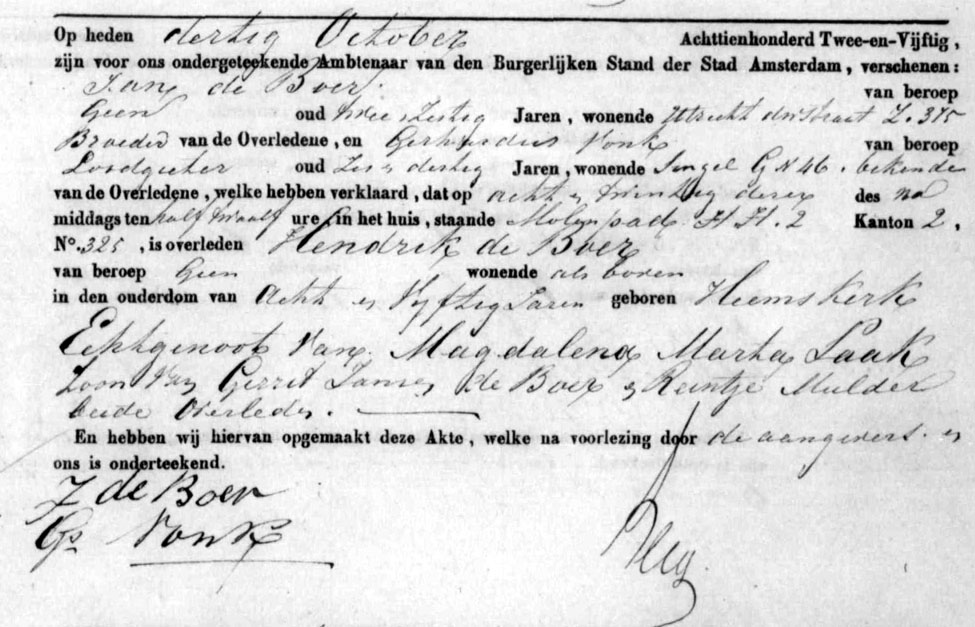 Op heden dertig October Achttienhonderd Twee-en-Vijftig,
zijn voor ons ondergeteekende Ambtenaar van den Burgerlijken Stand der Stad Amsterdam, verschenen:
Jan de Boer van beroep
Geen oud twee Zestig Jaren, wonende Utrecht dw Straat Z. 375
Broeder van de Overledene, en Gerhardus Vonk van beroep
Loodgieter oud Zes en dertig Jaren, wonende Singel G N 46. bekende
van de Overledene, welke hebben verklaard, dat op acht en twintig dezer des na
middags ten half twaalf ure in het huis, staande Molenpad H H. 2 Kanton 2,
No. 325, is overleden Hendrik de Boer
van beroep Geen wonende als boven
in den ouderdom van Acht en Vyftig Jaren geboren Heemskerk
Echtgenoot van Magdalena Martha Laak
Zoon van Gerrit Janse de Boer en Reintje Mulder
beide Overleden.
En hebben wij hiervan opgemaakt deze Akte, welke na voorlezing door de aangevers en
ons is onderteekend.
J de Boer
Gs Vonk